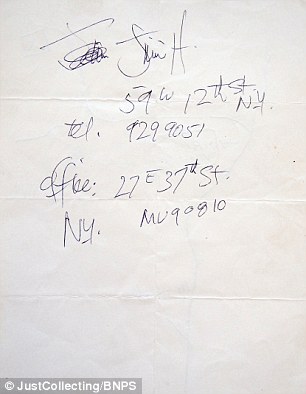 Jimi H.
59 W 12th St N.Y.
tel. 9299051
Office: 27 E 37th St.
N.Y. MU90810
© JustCollecting/BNPS